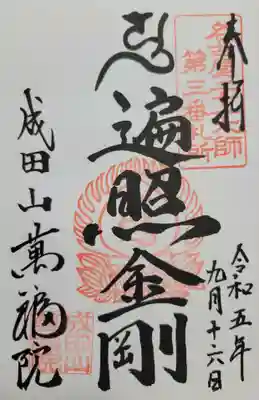 奉拝
名古屋大師
第三番札所
令和五年
九月十六日
遍照金剛
成田山萬福院
成田山